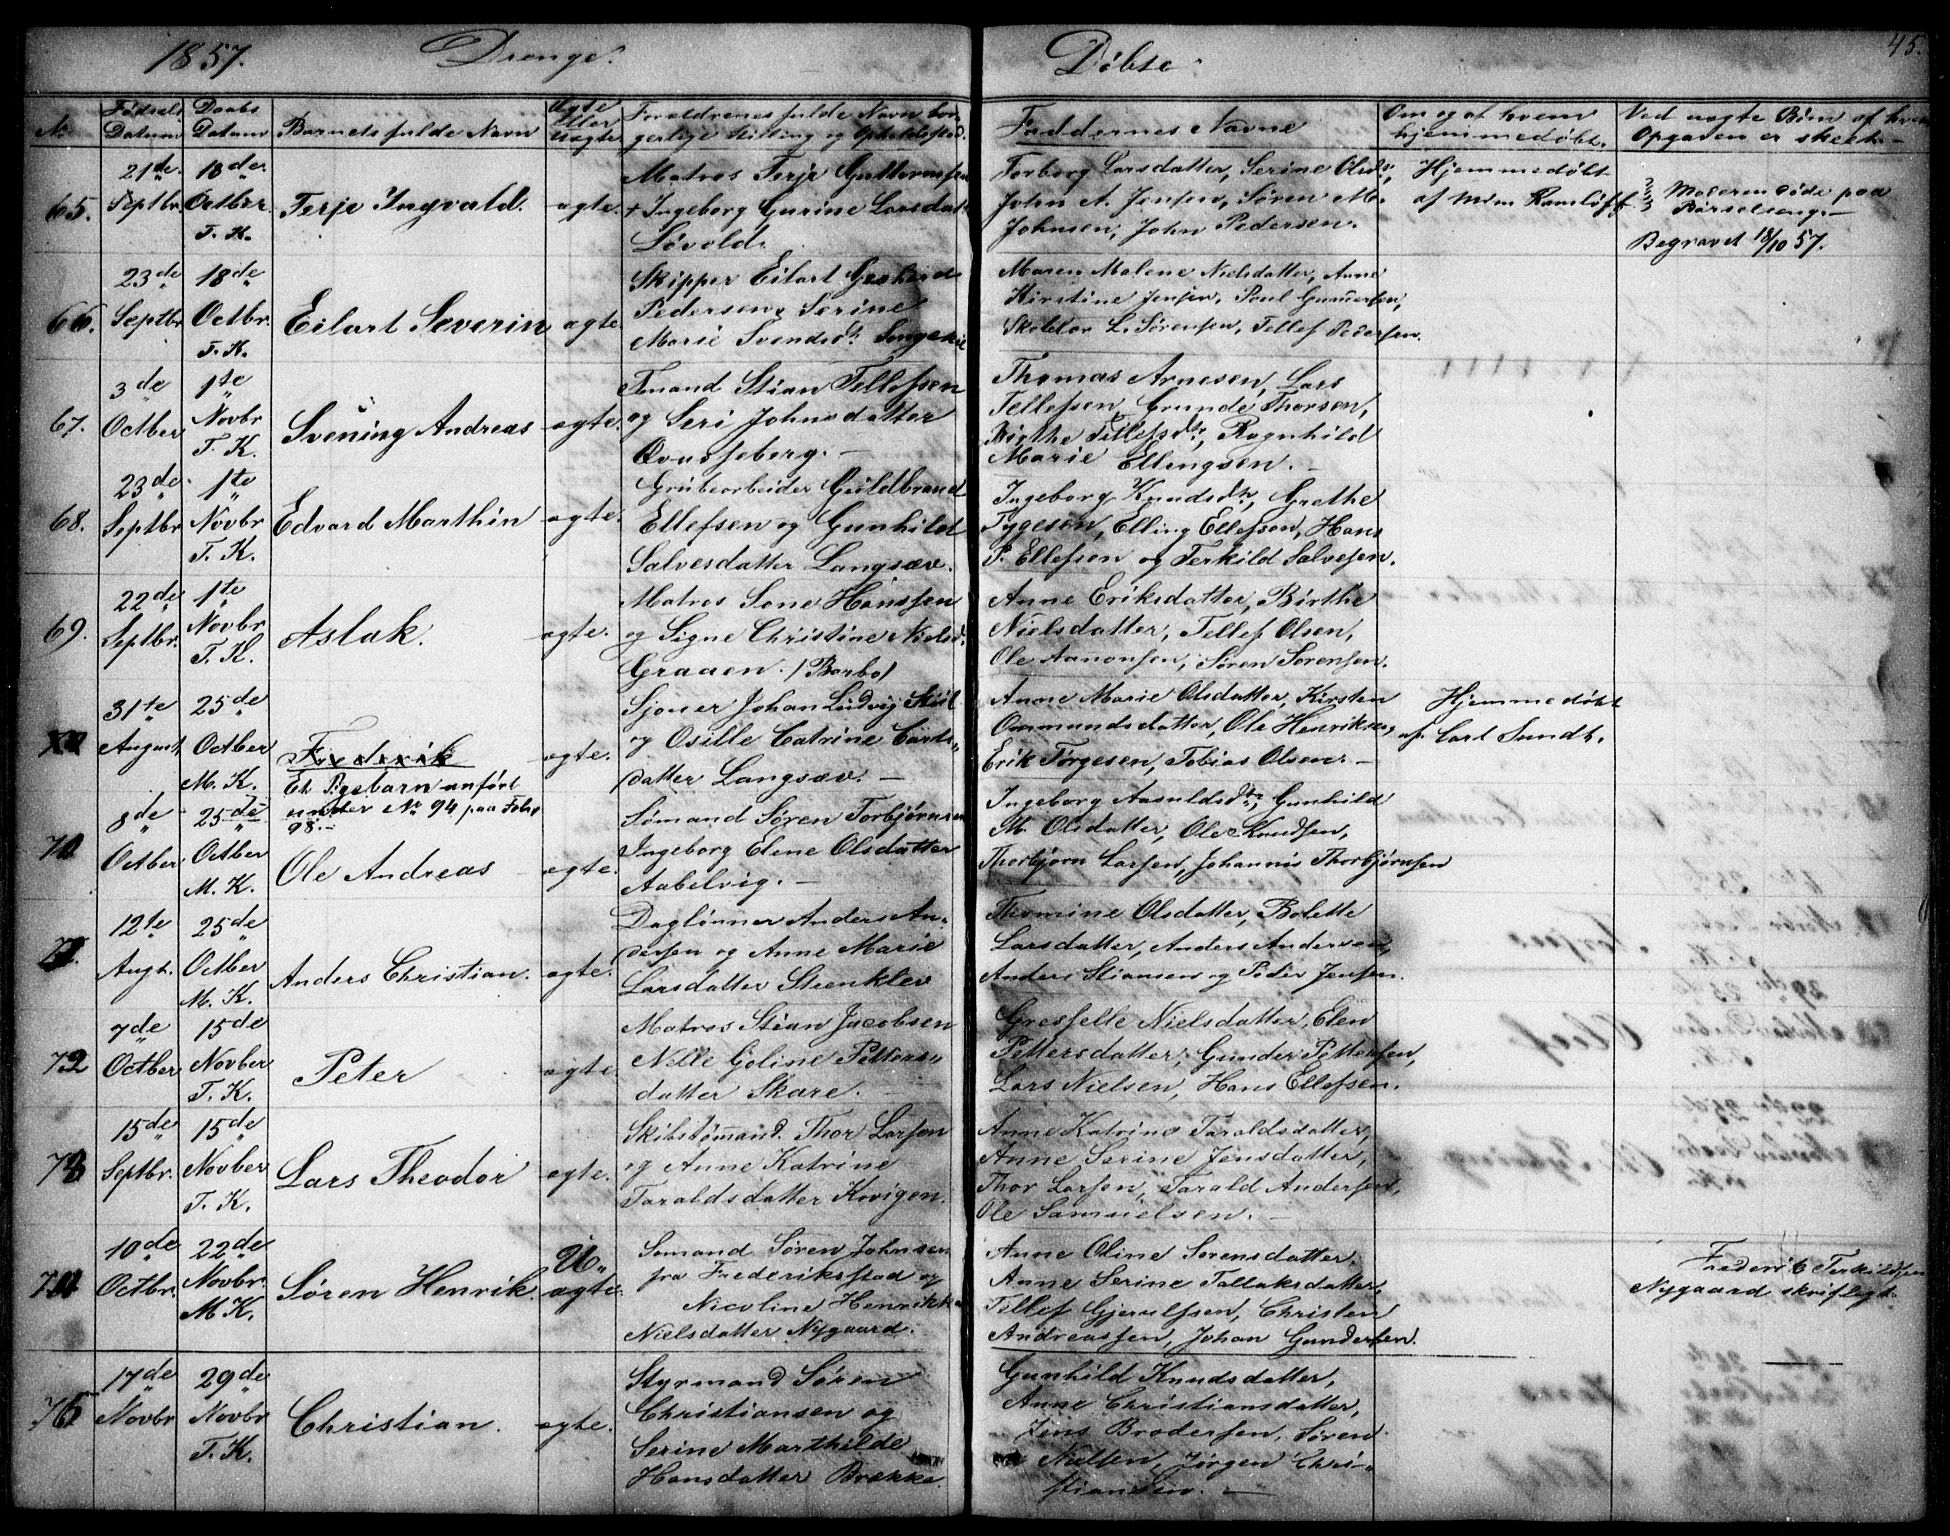 1857. Drenge. Døbte 45.
No Fødsels Datum Daabs Datum Barnets fulde Navn Ægte Eller Uægte Forældrenes fulde Navn bor-
gerlige Stilling og Opholdssted. Faddernes Navne Om og af hvem hjemmedøbt. Ved uægte Børn af hvem Opgaven er skeet.
65. 21de Septbr. 18de Octber T. K. Terje Ingvald. ægte.
Matros Terje Guttormsen
+ Ingeborg Gurine Larsdatr
Løvold.
Torborg Larsdatter, Serine Olsdr,
John A. Jensen, Søren M.
Johnsen, John Pedersen.
Hjemmedøbt
af Mdm Ramløff
Moderen døde paa
Barselseng.
Begravet 18/10 57.
66. 23de Septbr 18de Octbr. T. K. Eilart Severin ægte.
Skipper Eilart Gerhard
Pedersen, Serine
Marie Svendsdr. Songekil
Maren Malene Nielsdatter, Anne
Kirstine Jensen, Poul Gundersen,
Skoldor L. Sørensen, Tellef Pedersen.
67. 3de Octber 1te Novbr T. K. Svening Andreas ægte.
Tmand Stian Tellefsen
og Seri Johnsdatter
Thomas Arnesen, Lars
Tellefsen, Grunde Thorsen,
Birthe Tellefsdr, Ragnhild
Marie Ellingsen.
68. 23de Septbr 1te Novbr T. K. Edvard Marthin ægte.
Grubearbeider Guldbrand
Ellefsen og Gunhild
Salvesdatter Langsæv.
Ingeborg Knudsdr, Grethe
Tygesen, Elling Ellefsen, Hans
P. Ellefsen og Terkild Salvesen.
69. 22de Septbr. 1te Novbr. T. K. Aslak. ægte.
Matros Sone Hansen
og Signe Christine Nielsd.
Graaen. /Barbo/
Anne Eriksdatter, Birthe
Nielsdatter, Tellef Olsen,
Ole Aanonsen, Søren Sørensen.
31te August 25de Octber M. K. Frederik ægte.
Et Pigebarn anført
under No 94 paa Folio
98.
Sjouer Johan Ludvig
og Osille Catrine Carls-
datter Langsæv.
Anne Marie Olsdatter, Kirsten
Ommundsdatter, Ole Henriksen,
Erik Tørgesen, Tobias Olsen.
Hjemmedøbt
af Carl Sundt.
70 8de Octber 25de Octber M. K. Ole Andreas ægte.
Sømand Søren Torbjørnsen
Ingeborg Elene Olsdatter
Aabelvig.
Ingeborg Aasuldsdr, Gunhild
M. Olsdatter, Ole Knudsen,
Thorbjørn Larsen, Johannis Thorbjørnsen
71. 12te Augt. 25de Octber M. K. Anders Christian. ægte.
Daglønner Anders An-
dersen og Anne Marie
Larsdatter Steenklev
Thomine Olsdatter, Bolette
Larsdatter, Anders Andersen,
Anders Stiansen og Peder Jensen.
72 7de Octber 15de Novber T. K. Peter ægte
Matros Stian Jacobsen
Nille Goline Petters-
datter Skare.
Gresselle Nielsdatter, Elen
Pettersdatter, Gunder Pettersen,
Lars Nielsen, Hans Ellefsen.
73 15de Septbr. 15de Novber T. K. Lars Theodor ægte.
Skibstømand. Thor Larsen
og Anne Katrine
Taraldsdatter Kvigen.
Anne Katrine Taraldsdatter,
Anne Serine Jensdatter,
Thor Larsen, Tarald Andersen,
Ole Samuelsen.
74 10de Octbr. 22de Novbr. M K. Søren Henrik. U-ægte.
Sømand Søren Johnsen
fra Frederikstad og
Nicoline Henrikke
Nielsdatter Nygaard.
Anne Oline Sørensdatter,
Anne Serine Tallaksdatter,
Tellef Gjerulfsen, Christen
Andreassen, Johan Gundersen.
Frederik Terkildsen
Nygaard skriftligt.
75 17de Novbr 29de Novbr T. K. Christian. ægte.
Styrmand Søren
Christiansen og
Serine Marthilde
Hansdatter Brække.
Gunhild Knudsdatter,
Anne Christiansdatter,
Jens Brodersen, Søren
Nielsen, Jørgen Chri-
stiansen.